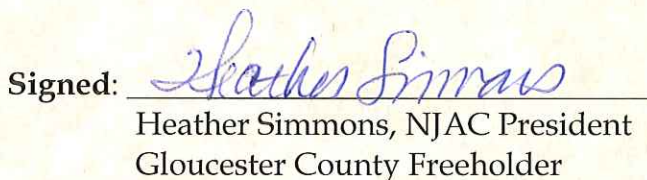 Signed: Heather Simmons
Heather Simmons, NJAC President
Gloucester County Freeholder